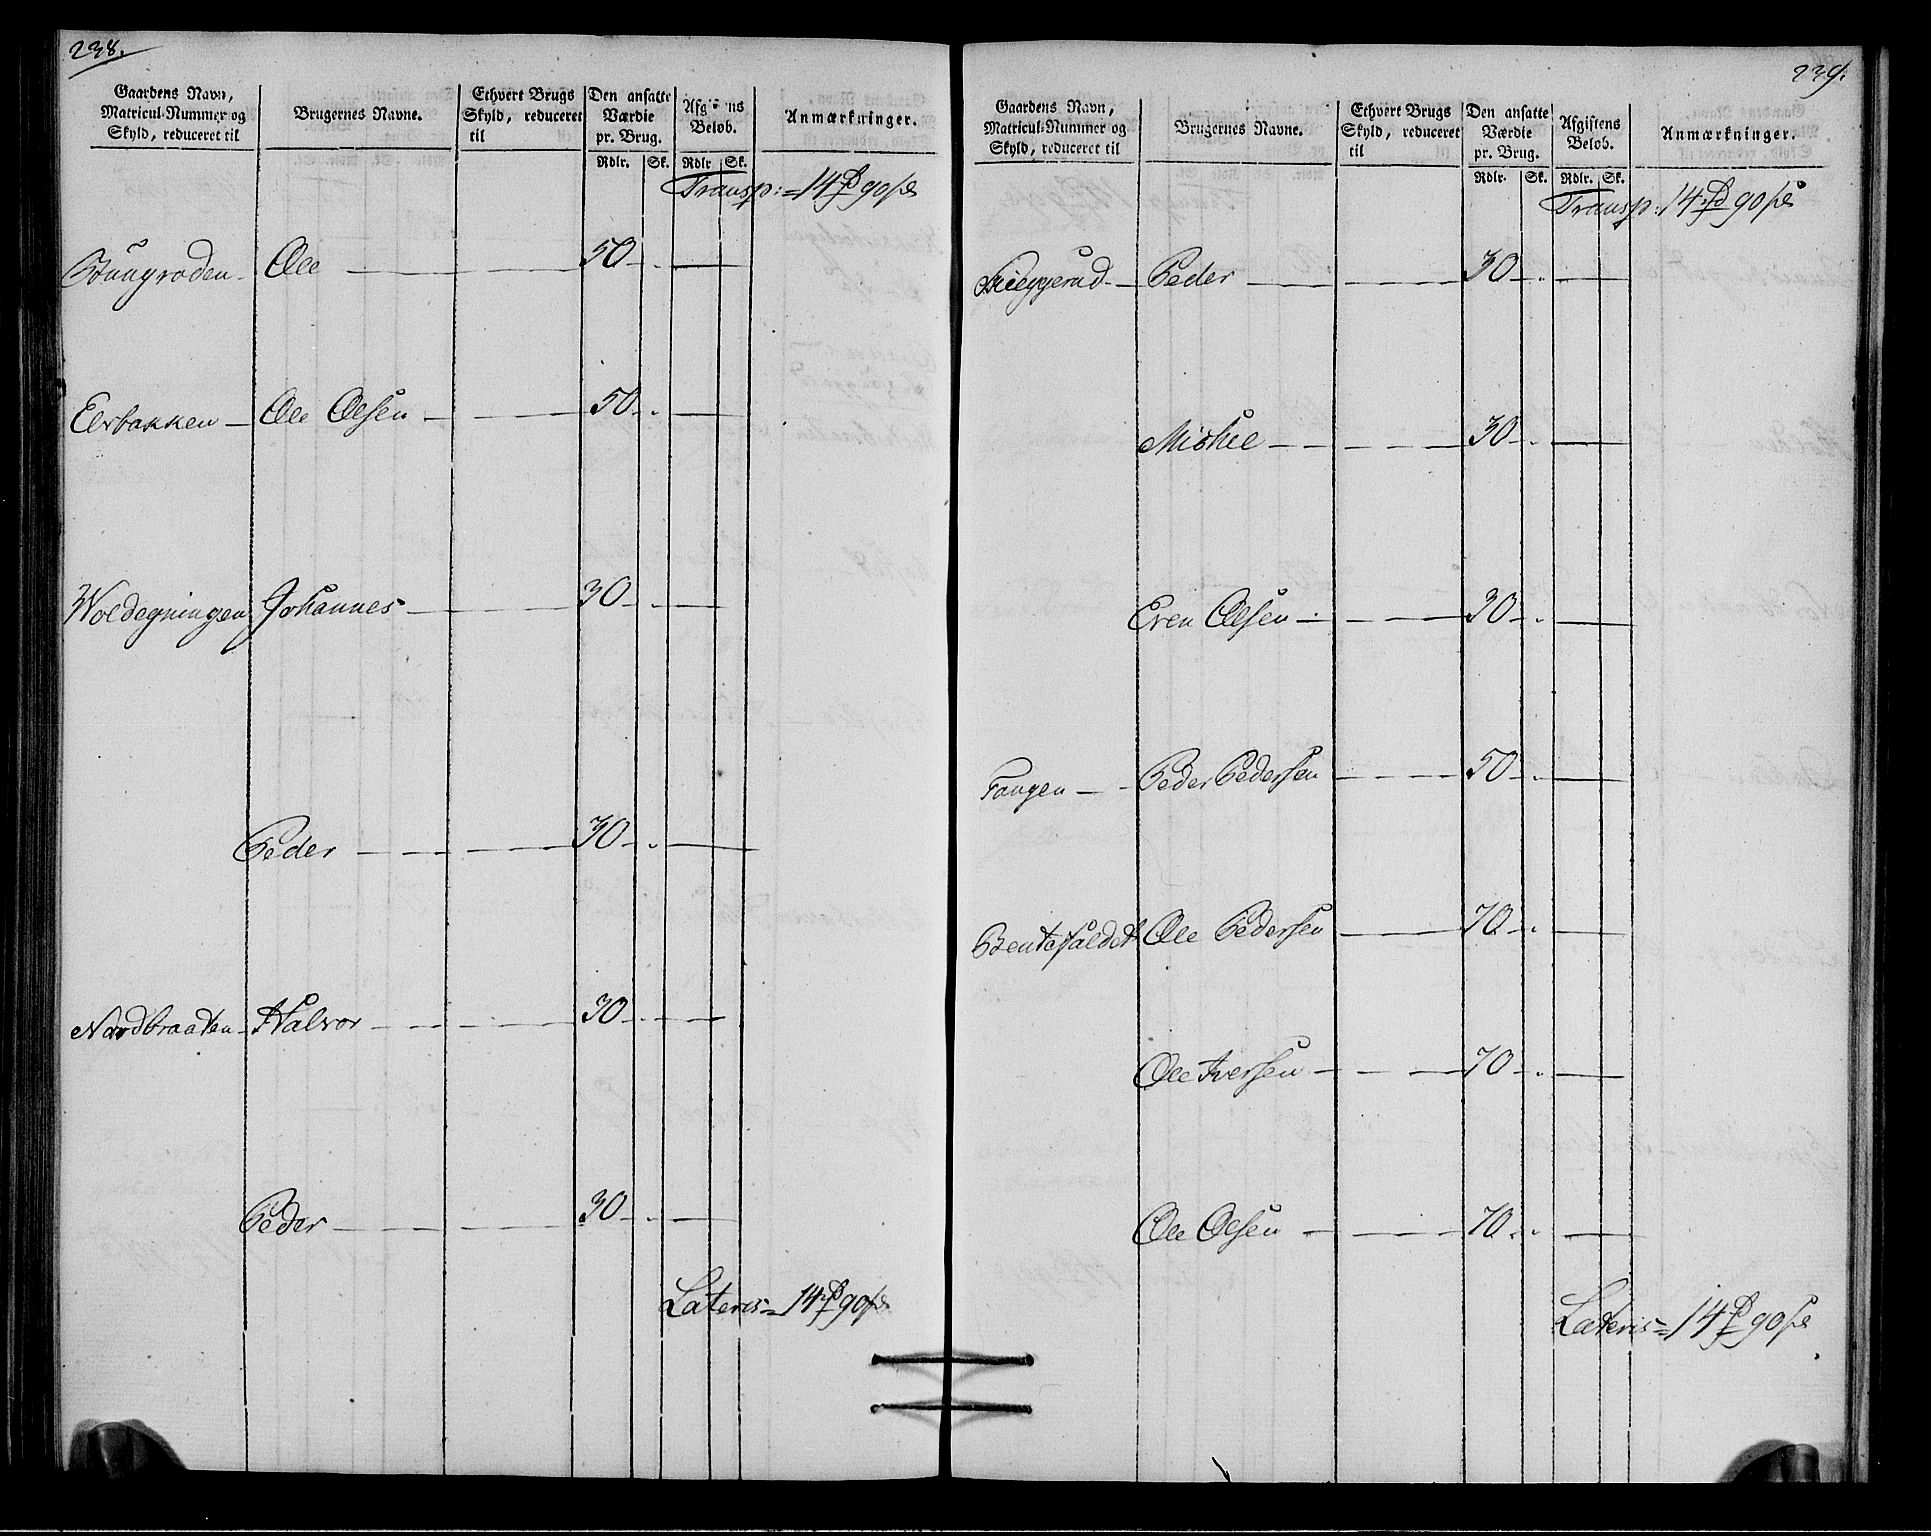 238.
Gaardens Navn, Matricul-Nummer og Skyld, reduceret til
Brugernes Navne.
Ethvert Brugs Skyld, reduceret til
Den ansatte Værdie pr. Brug.
Afgiftens Beløb.
Anmærkninger.
Rdlr. Sk. Rdlr Sk.
Transp: = 14 90
Ole — 50 - . —
Elvbakken — Ole Olsen — 50 - . —
Woldegningen Johannes — 30 - . —
Peder — 30 - . —
Nordbraaten — Halvor — 30 - . —
Peder — 30 - . —
Lateris = 14 90
239.
Gaardens Navn, Matricul-Nummer og Skyld, reduceret til
Brugernes Navne.
Ethvert Brugs Skyld, reduceret til
Den ansatte Værdie pr. Brug.
Afgiftens Beløb.
Anmærkninger.
Rdlr. Sk. Rdlr. Sk.
Transp: 14 90
Peder — 30 - . —
Mickel — 30 - . —
Even Olsen — 30 - . —
Tangen — Peder Pedersen — 50 - . —
Ole Pedersen — 70 - . —
Ole Iversen — 70 - . —
Ole Olsen — 70 - . —
Lateris = 14 90